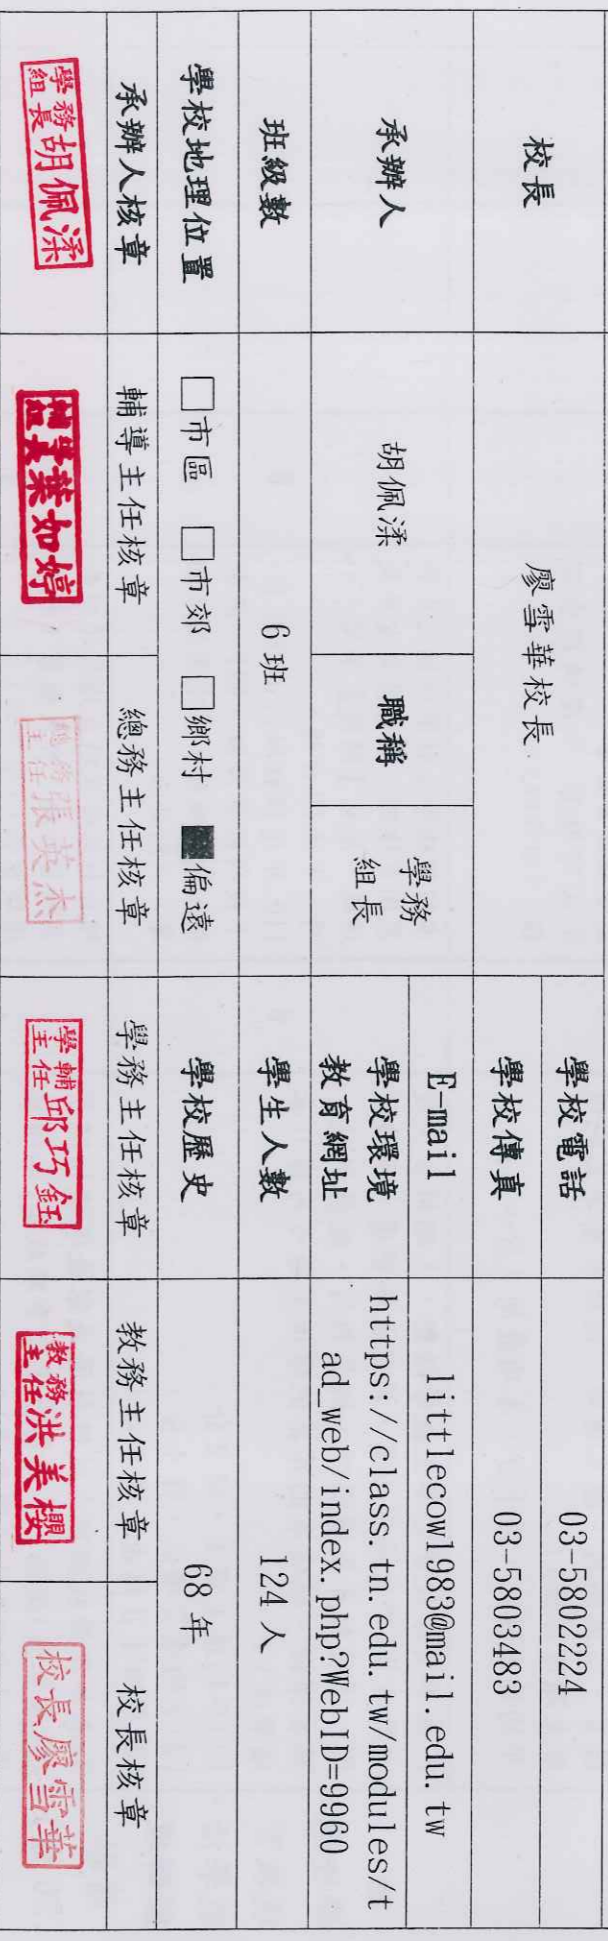 校長
廖雪華校長
學校電話
03-5802224
學校傳真
03-5803483
承辦人
胡佩渘
職稱
學務
組長
E-mail
littlecow1983@mail.edu.tw
學校環境
教育網址
https://class.tn.edu.tw/modules/t
ad_web/index.php?WebID=9960
班級數
6 班
學生人數
124 人
學校地理位置
□市區 □市郊 □鄉村 ■偏遠
學校歷史
68 年
承辦人核章
輔導主任核章
總務主任核章
學務主任核章
教務主任核章
校長核章
學務
組長胡佩渘
葉如婷
總務
主任張英杰
學輔
主任邱巧鈺
教務
主任洪美櫻
校長廖雪華